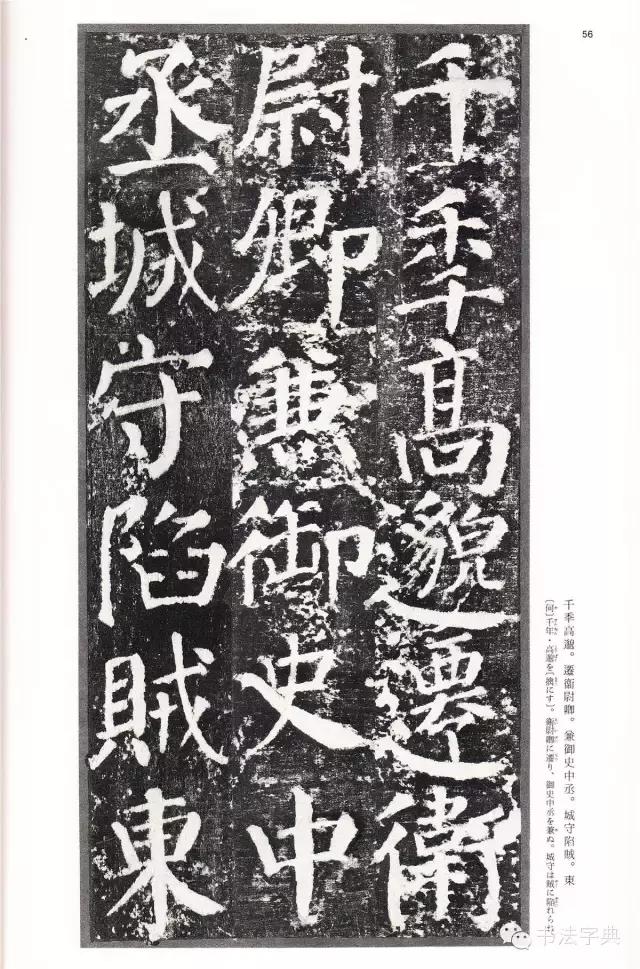 56
千秊高邈遷衛
尉卿兼御史中
丞城守陷賊東
千秊高邈。遷衞尉卿。兼御史中丞。城守陷賊。東
〔伺〕千年・高邈を〔擒にす〕。衞尉卿に遷り、御史中丞を兼ぬ。城守は賊に陷れられ、
书法字典